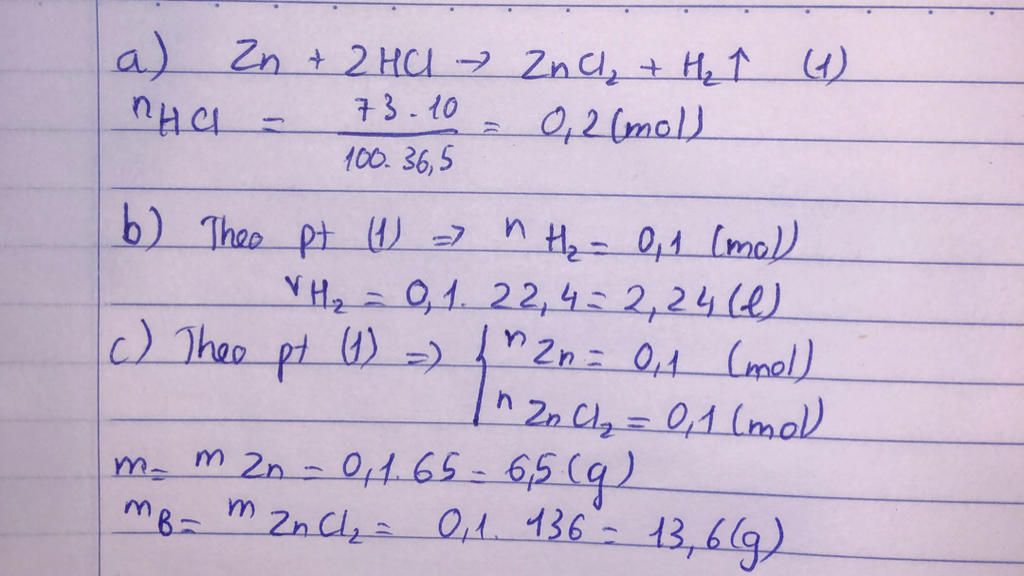 a) Zn + 2HCl → ZnCl₂ + H₂↑ (1)
nHCl = 73.10 / 100.36,5 = 0,2 (mol)
b) Theo pt (1) => nH₂ = 0,1 (mol)
VH₂ = 0,1. 22,4 = 2,24 (l)
c) Theo pt (1) => { nZn = 0,1 (mol)
nZnCl₂ = 0,1 (mol)
m = mZn = 0,1.65 = 6,5 (g)
mB = mZnCl₂ = 0,1. 136 = 13,6 (g)